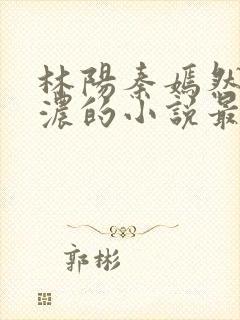 林陽秦嫣然
濃的小說最
郭彬